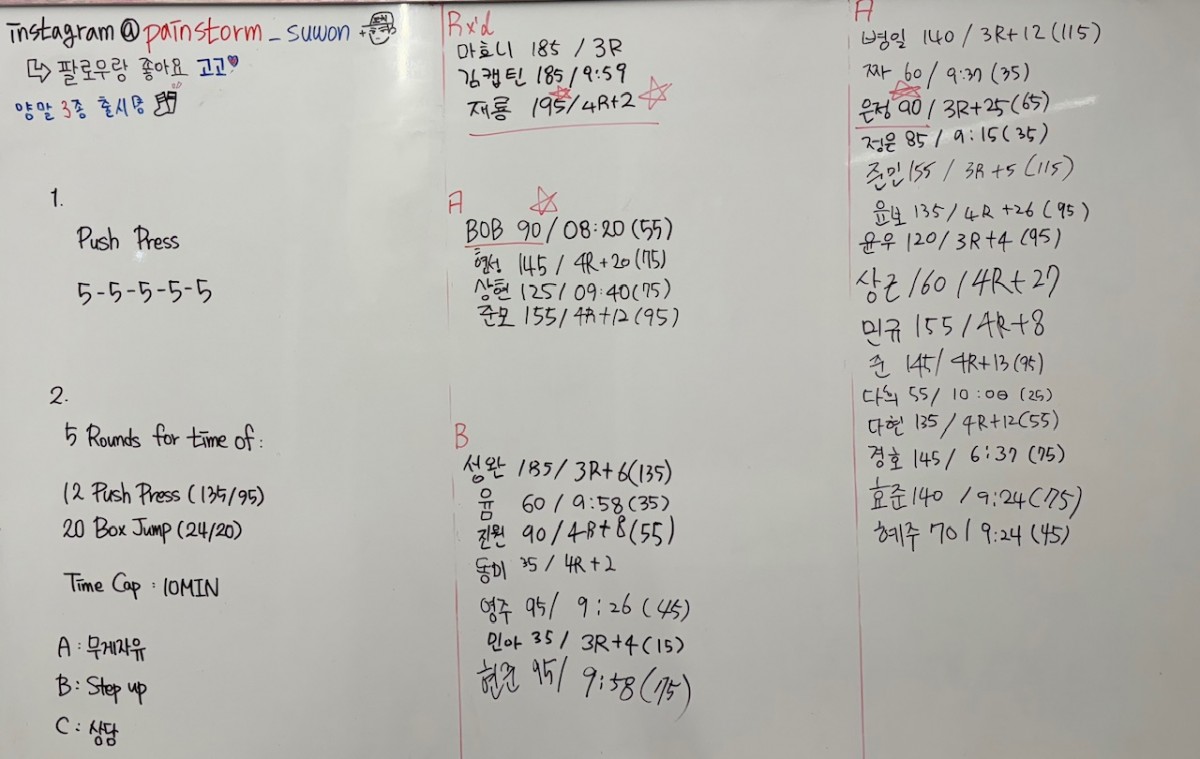 instagram@painstorm_suwon
팔로우랑 좋아요 고고
양말 3종 출시중
1.
Push Press
5-5-5-5-5
2.
5 Rounds for time of:
12 Push Press (135/95)
20 Box Jump (24/20)
Time Cap : 10MIN
A : 무게자유
B : Step up
C : 상담
Rx'd
마호니 185 / 3R
김캡틴 185 / 9:59
재룡 195 / 4R+2
A
BOB 90 / 08:20 (55)
형성 145 / 4R+20 (75)
상현 125 / 09:40 (75)
준모 155 / 4R+12 (95)
B
성완 185 / 3R+6 (135)
윰 60 / 9:58 (35)
진원 90 / 4R+8 (55)
동미 35 / 4R+2
영주 95 / 9:26 (45)
민아 35 / 3R+4 (15)
현준 95 / 9:58 (75)
A
병일 140 / 3R+12 (115)
짜 60 / 9:37 (35)
은정 90 / 3R+25 (65)
정은 85 / 9:15 (35)
준민 155 / 3R+5 (115)
윤보 135 / 4R+26 (95)
윤우 120 / 3R+4 (95)
상근 160 / 4R+27
민규 155 / 4R+8
준 145 / 4R+13 (95)
다희 55 / (25)
다현 135 / 4R+12 (55)
경호 145 / 6:37 (75)
효준 140 / 9:24 (75)
혜주 70 / 9:24 (45)